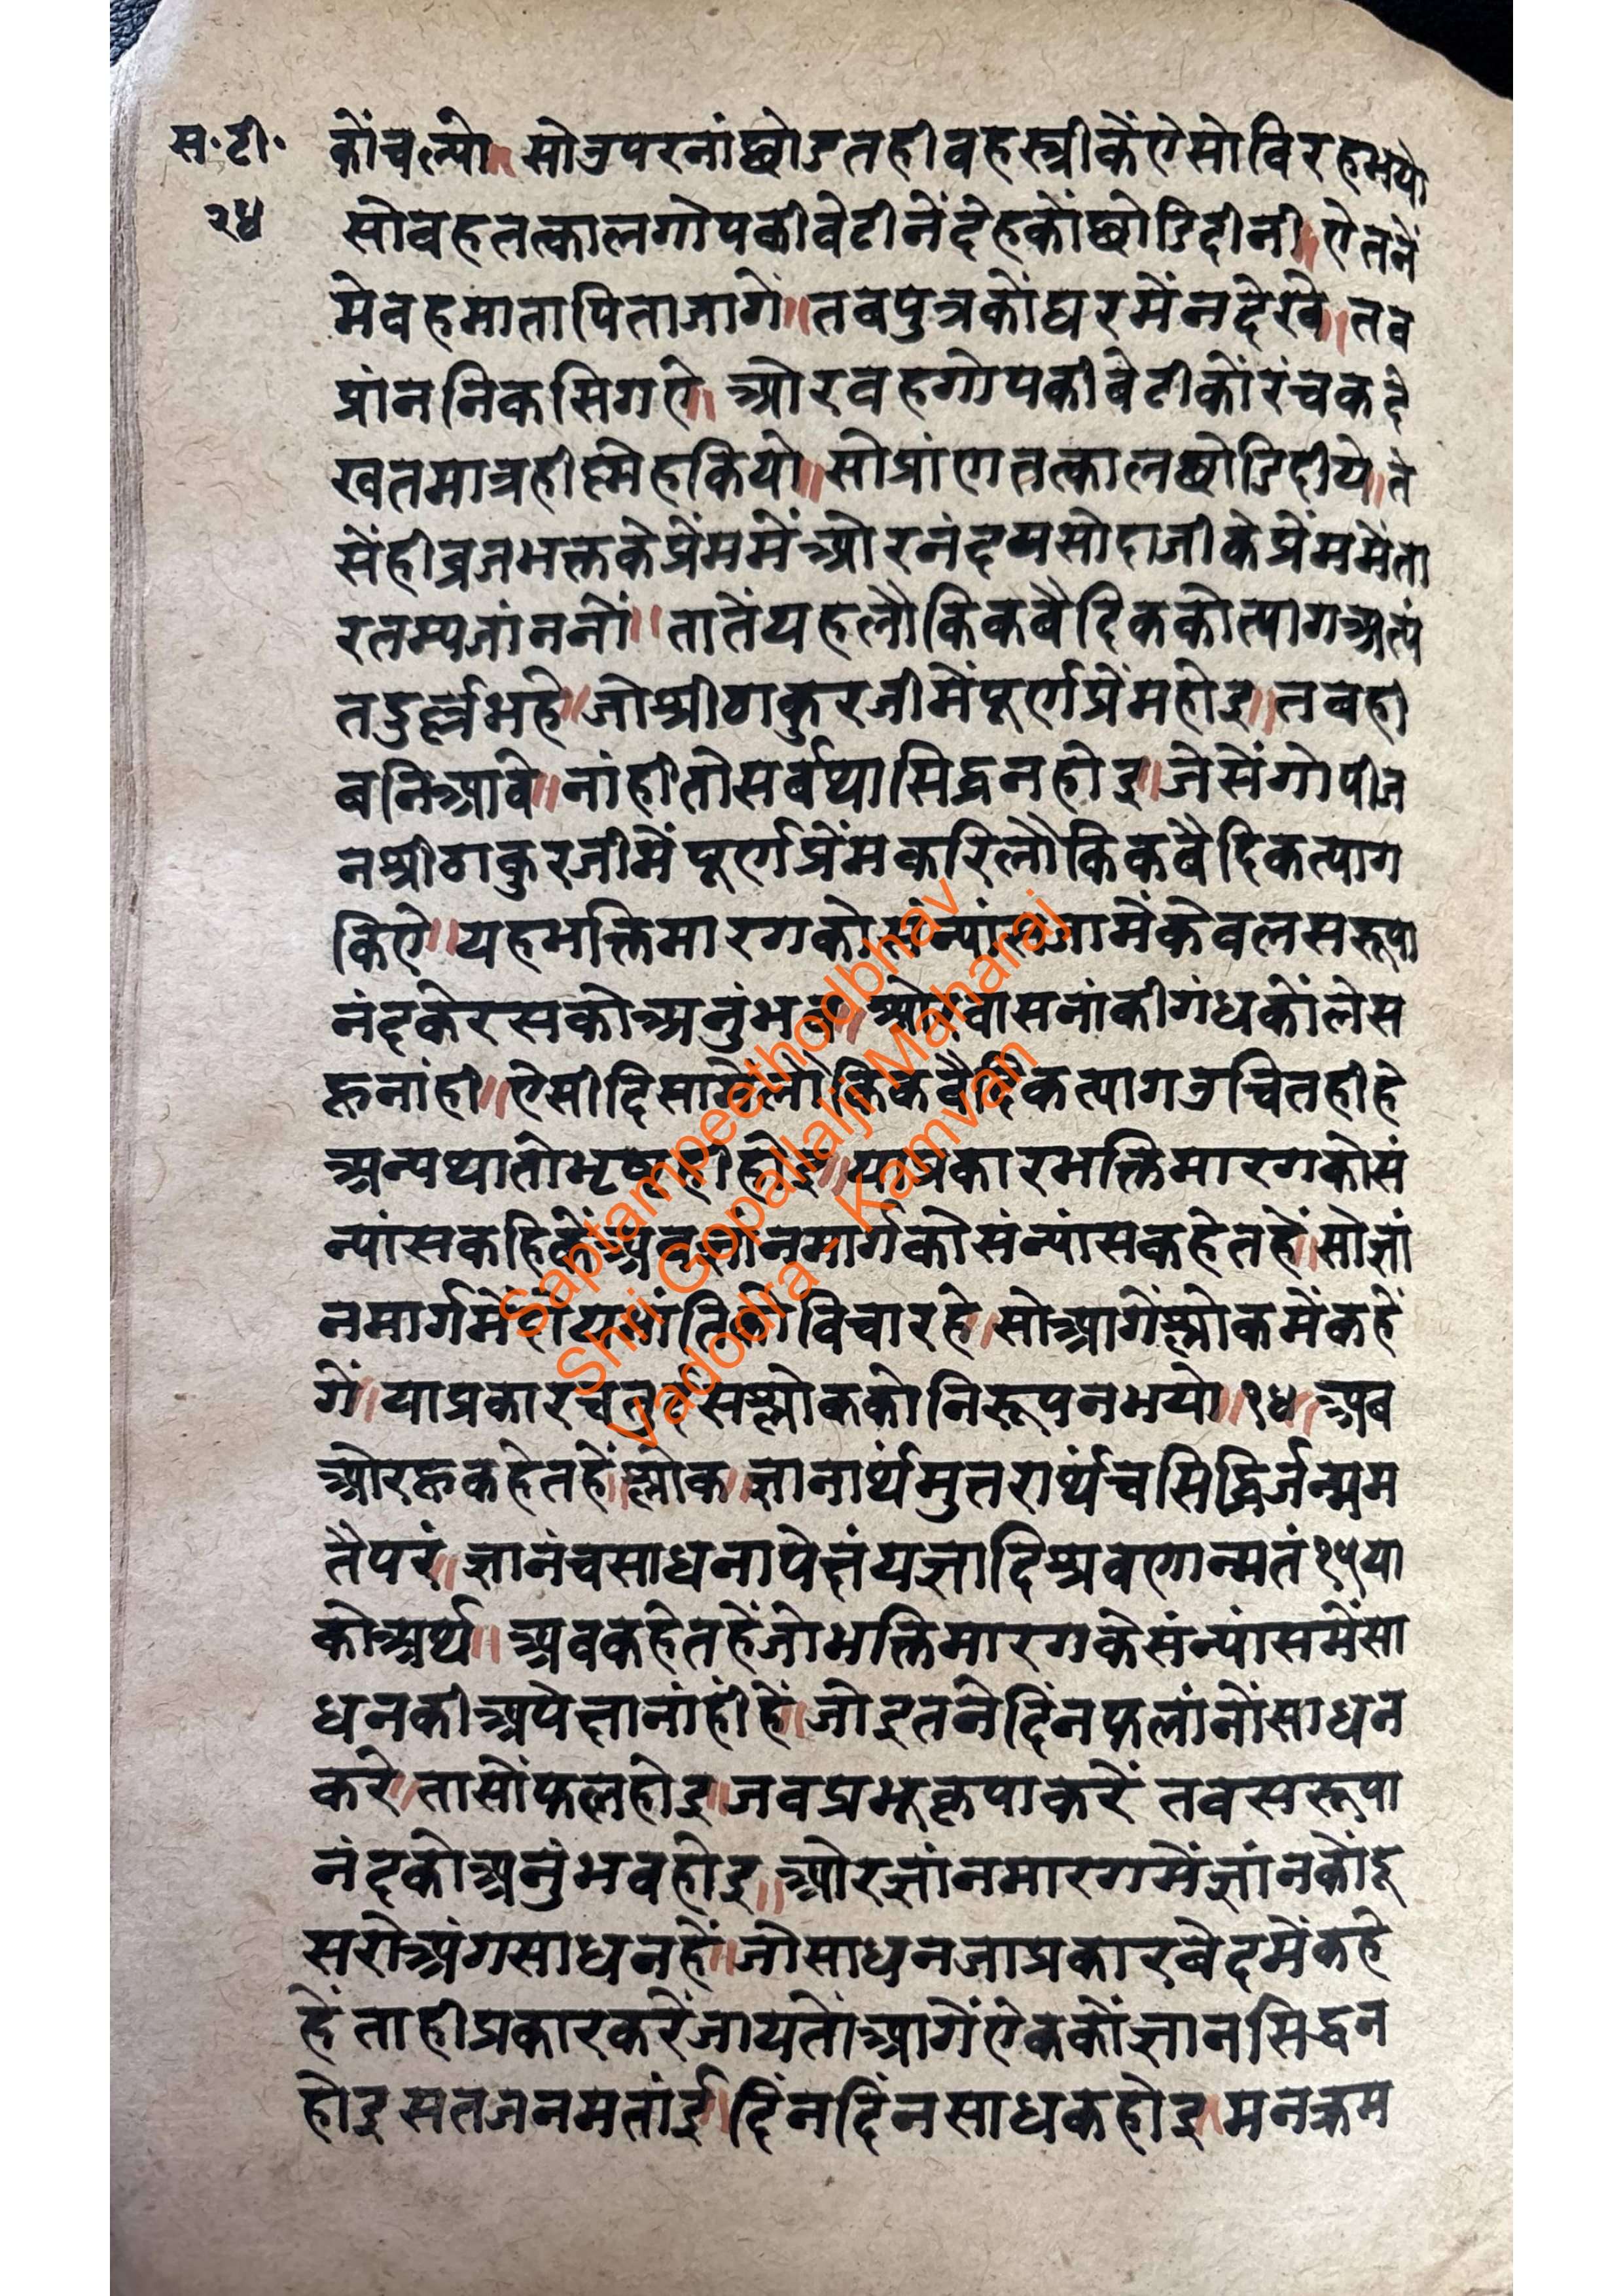 स॰टी॰
२४
कोंचल्यो॥सोउपरनांछोडतहीवहस्त्रीकेंऐसोविरहभयो
सोवहतत्कालगोपकीवेटीनेंदेहकोंछोडिदीनी॥ऐतनें
मेवहमातापिताजागे॥तवपुत्रकोंघरमेंनदेखे॥तव
प्रांननिकसिगऐ॥ओरवहगोपकीबेटीकोंरंचकदे
खतमात्रहीस्नेहकियो॥सोप्रांणतत्कालछोडिदीये॥ते
सेंहीव्रजभक्तकेप्रेंममेंओरनंदयसोदाजीकेप्रेंममेंता
रतम्यजांननों॥तातेंयहलौकिकबैदिककोत्यागअत्यं
तदुर्ल्लभहे॥जोश्रीठाकुरजीमेंपूर्णप्रेंमहोइ॥तबही
बनिआवे॥नांहीतोसर्बथासिद्धनहोइ॥जेसेंगोपीज
नश्रीठाकुरजीमेंपूर्णप्रेंमकरिलौकिकबैदिकत्याग
किऐ॥यहभक्तिमारगकोसंन्यांसजामेंकेवलसरूपा
नंदकेरसकोअनुंभव॥ओरवासनांकीगंधकोंलेस
हूनांही॥ऐसीदिसामेंलौकिकबैदिकत्यागउचितहीहे
अन्यथातोभृष्टहीहोइ॥याप्रकारभक्तिमारगकोसं
न्यांसकहिकेंअवज्ञांनमार्गकोसंन्यांसकहेतहें॥सोज्ञां
नमार्गमेंदोयभांतिकोविचारहे॥सोआगेंश्लोकमेंकहें
गें॥याप्रकारचतुर्दसश्लोककोनिरूपनभयो॥१४॥अब
ओरहूकहेतहें॥श्लोक॥ज्ञानार्थमुत्तरार्थंचसिद्धिर्जन्मम
तैपरं॥ज्ञानंचसाधनापेक्षंयज्ञादिश्रवणान्मतं१५या
कोअर्थ॥अवकहेतहेंजोभक्तिमारगकेसंन्यांसमेंसा
धनकीअपेक्षानांहींहें॥जोइतनेदिंनफलांनोंसाधन
करे॥तासोंफलहोइ॥जवप्रभूकृपाकरें तवसरूपा
नंदकोअनुंभवहोइ॥ओरज्ञांनमारगमेंज्ञांनकोंदू
सरोअंगसाधनहें॥जोसाधनजाप्रकारबेदमेंकहे
हें ताहीप्रकारकरेंजायतोंआगेंऐककोंज्ञानसिद्धन
होइसतजनमतांई॥दिंनदिंनसाधकहोइ॥मनक्रम
Saptampeethodbhav
Shri Gopallalji Maharaj
Vadodra - Kamvan